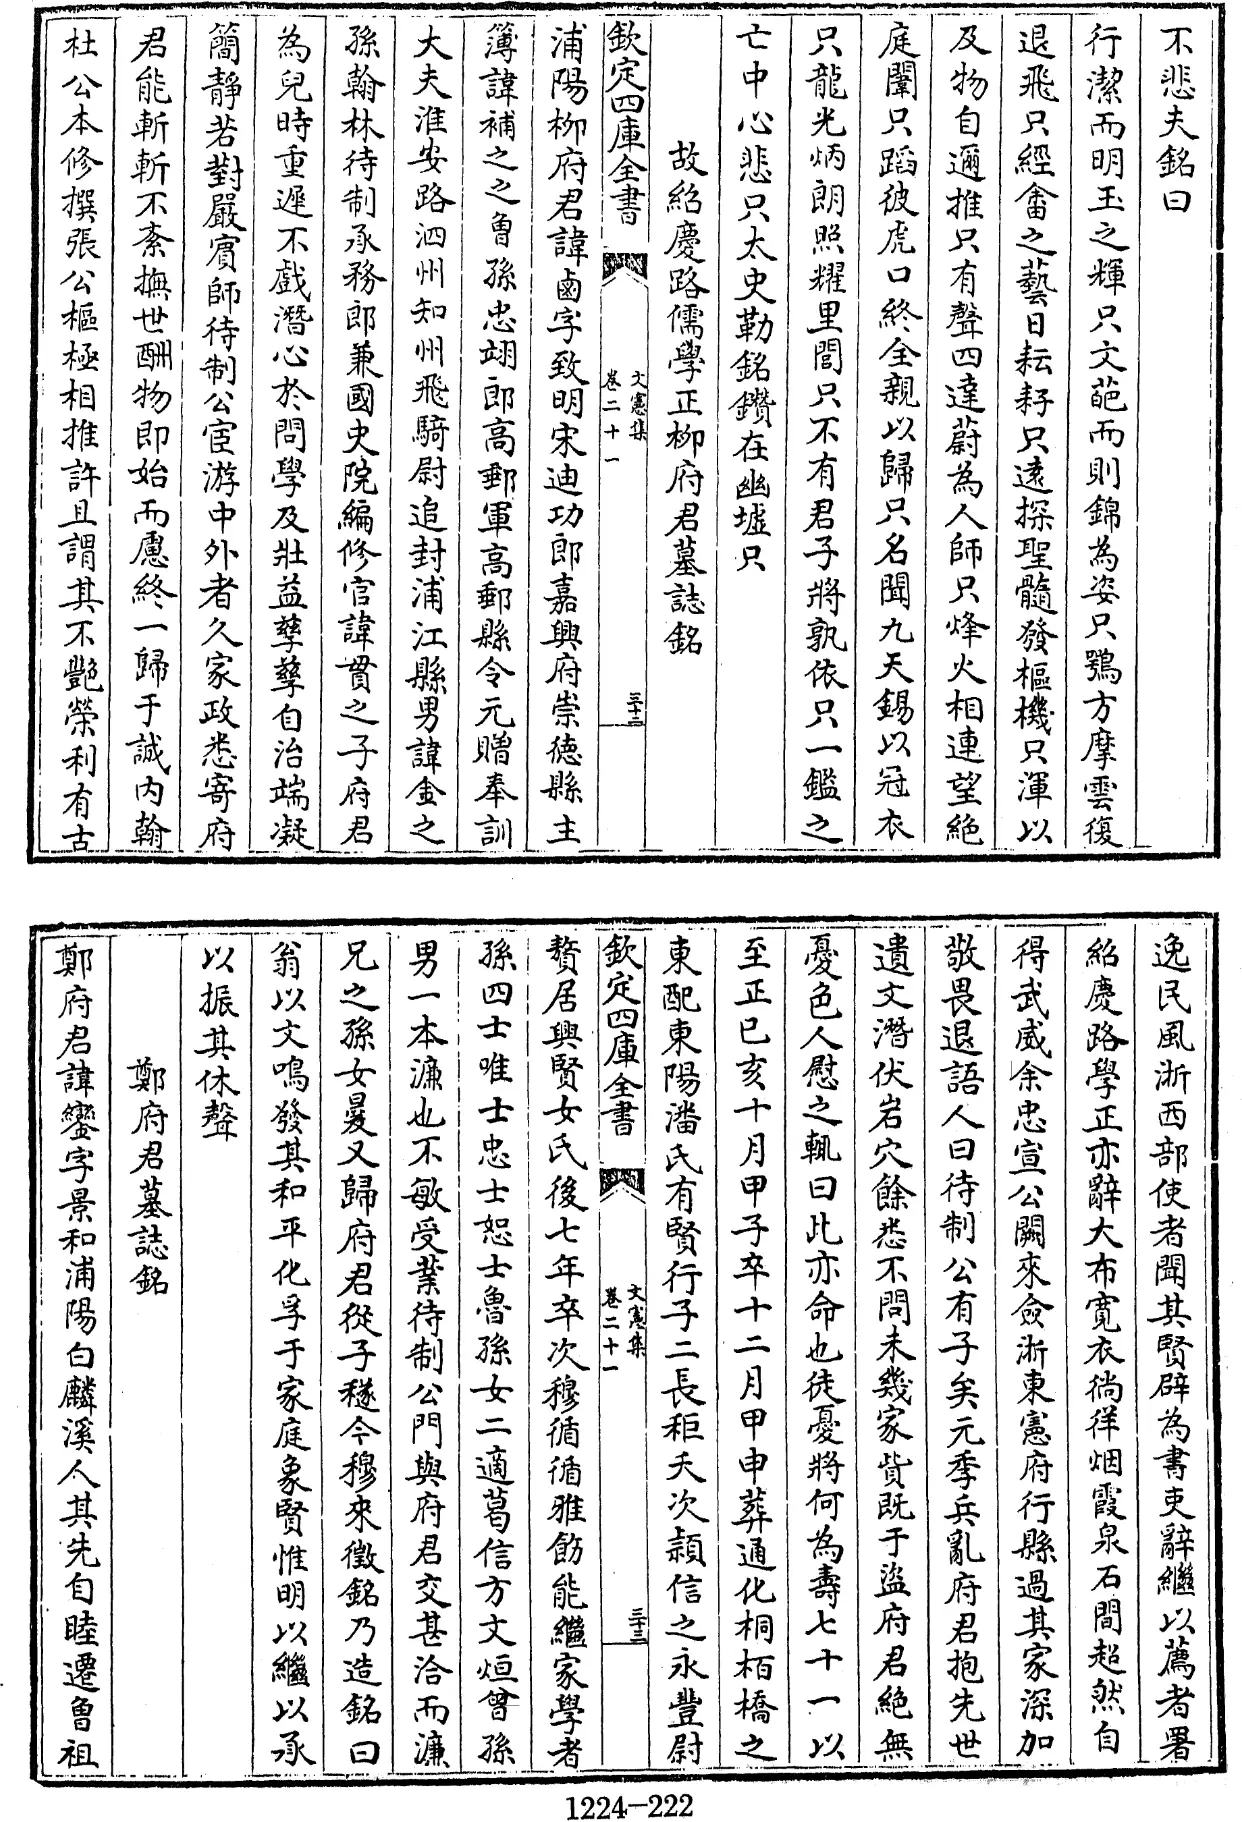 不悲夫銘曰
行潔而明玉之輝只文葩而則錦為姿只鶚方摩雲復
退飛只經畬之藝日耘耔只遠探聖髓發樞機只渾以
及物自邇推只有聲四達蔚為人師只烽火相連望絶
庭闈只蹈彼虎口終全親以歸只名聞九天錫以冠衣
只龍光炳朗照耀里閭只不有君子將孰依只一鑑之
亡中心悲只太史勒銘鑽在幽墟只
故紹慶路儒學正柳府君墓誌銘
欽定四庫全書
文憲集
卷二十一
三十二
浦陽柳府君諱鹵字致明宋迪功郎嘉興府崇德縣主
簿諱補之之曾孫忠翊郎高郵軍高郵縣令元贈奉訓
大夫淮安路泗州知州飛騎尉追封浦江縣男諱金之
孫翰林待制承務郎兼國史院編修官諱貫之子府君
為兒時重遲不戲潛心於問學及壯益孳孳自治端凝
簡靜若對嚴賓師待制公宦游中外者久家政悉寄府
君能斬斬不紊撫世酬物即始而慮終一歸于誠内翰
杜公本修撰張公樞極相推許且謂其不艷榮利有古
逸民風浙西部使者聞其賢辟為書吏辭繼以薦者署
紹慶路學正亦辭大布寛衣徜徉烟霞泉石間超然自
得武威余忠宣公闕來僉浙東憲府行縣過其家深加
敬畏退語人曰待制公有子矣元季兵亂府君抱先世
遺文潛伏岩穴餘悉不問未幾家貲既于盜府君絶無
憂色人慰之輒曰此亦命也徒憂將何為壽七十一以
至正己亥十月甲子卒十二月甲申葬通化桐栢橋之
東配東陽潘氏有賢行子二長秬夭次穎信之永豐尉
欽定四庫全書
文憲集
卷二十一
三十三
贅居興賢女氏後七年卒次穆循循雅飭能繼家學者
孫四士唯士忠士恕士魯孫女二適葛信方文烜曾孫
男一本濂也不敏受業待制公門與府君交甚洽而濂
兄之孫女㬅又歸府君從子穟今穆來徵銘乃造銘曰
翁以文鳴發其和平化孚于家庭象賢惟明以繼以承
以振其休聲
鄭府君墓誌銘
鄭府君諱鑾字景和浦陽白麟溪人其先自睦遷曾祖
1224-222